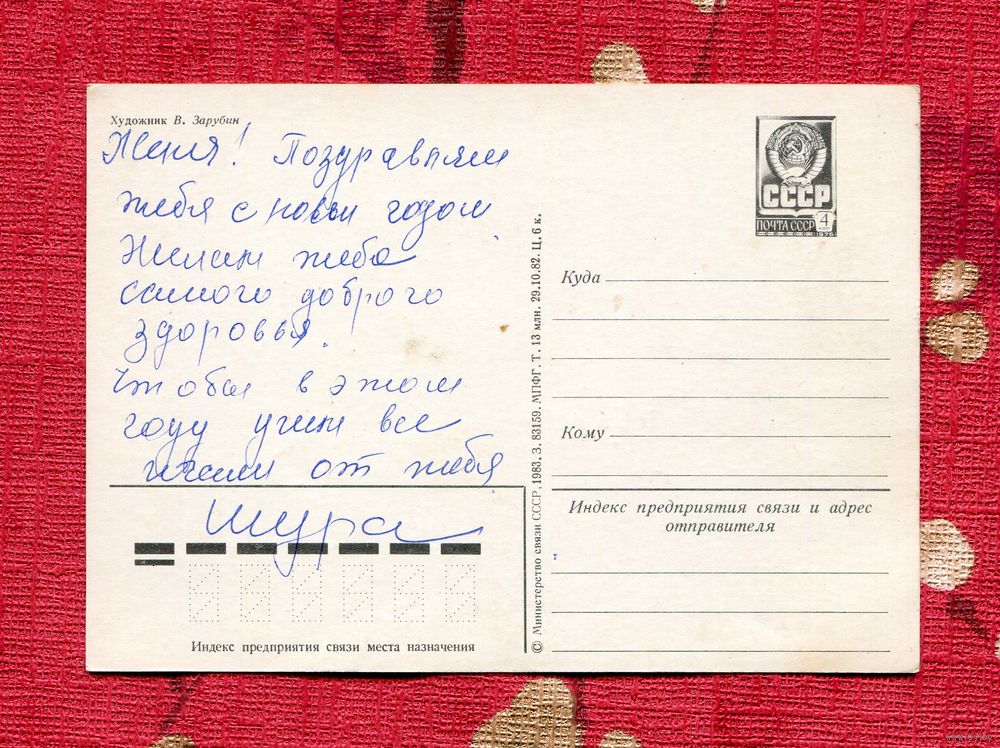 Художник В. Зарубин
Женя! Поздравляем
тебя с новым годом
Желаем тебе
самого доброго
здоровья.
Чтобы в этом
году учил все
от тебя
Шура
Индекс предприятия связи места назначения
© Министерство связи СССР, 1983. З. 83159. МПФГ. Т. 13 млн. 29.10.82. Ц. 6 к.
СССР
ПОЧТА СССР 4
КОП
1976
Куда
Кому
Индекс предприятия связи и адрес
отправителя